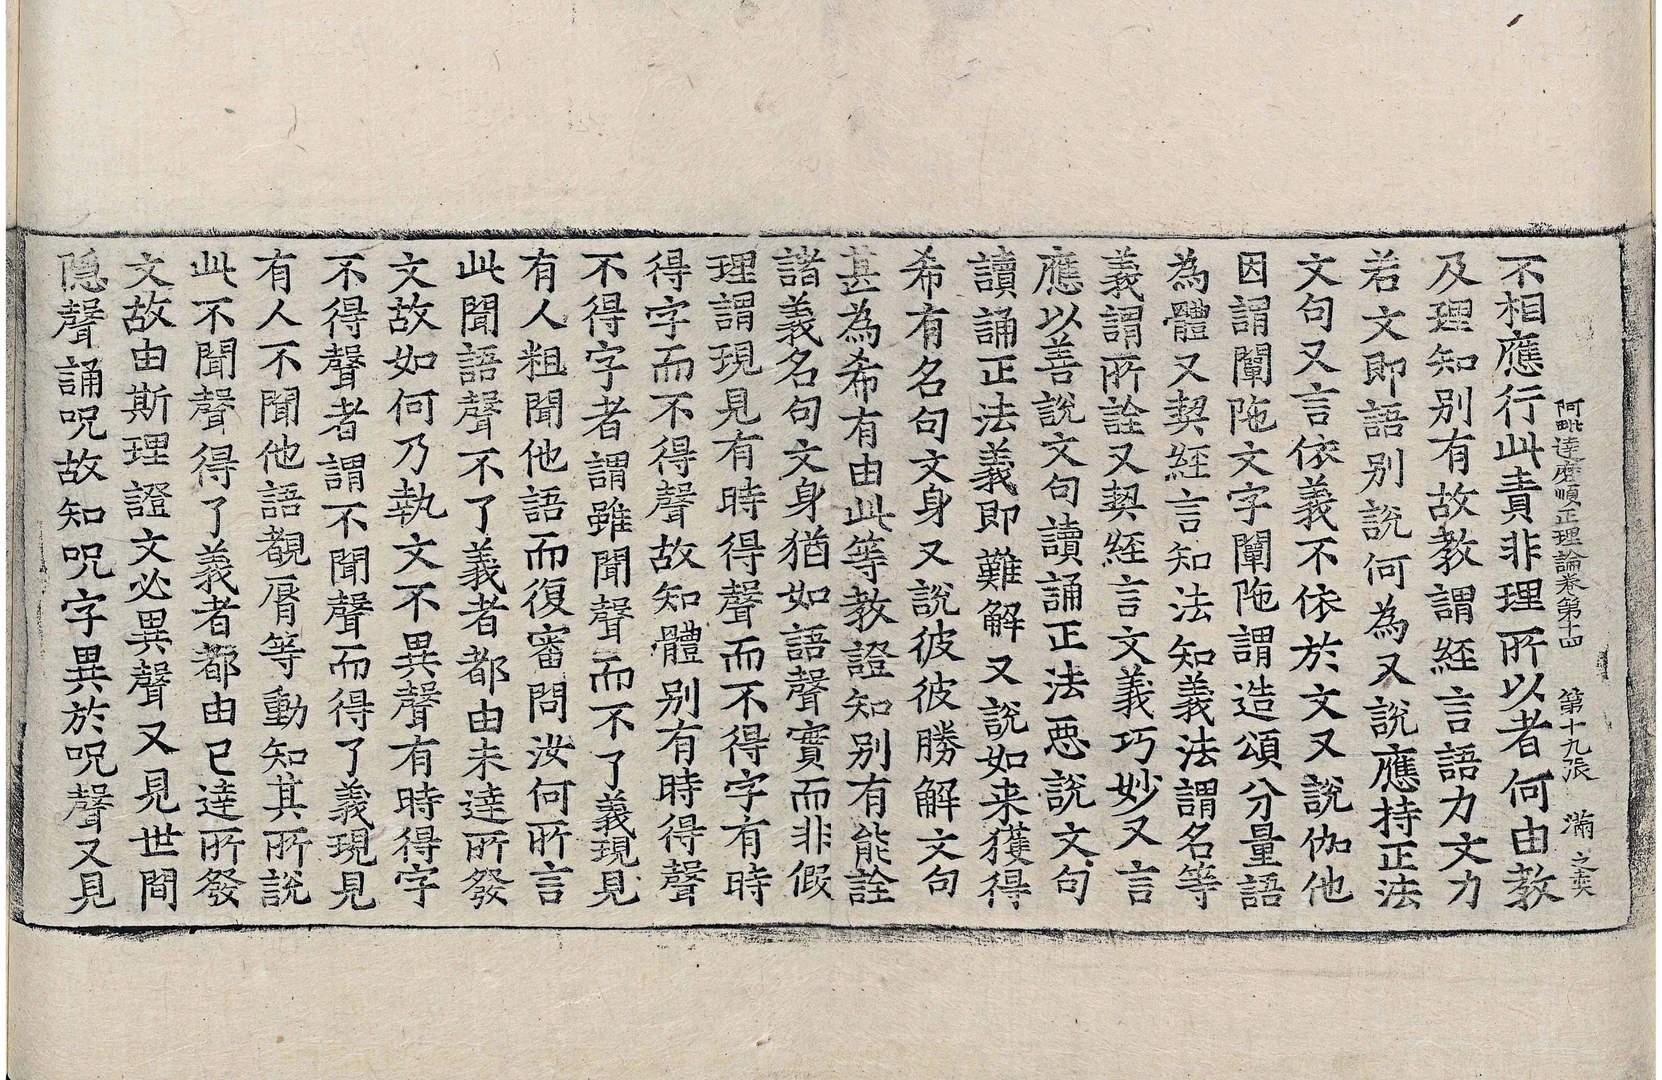 阿毗達磨順正理論卷第十四 第十九張 滿
不相應行此責非理所以者何由教
及理知別有故教謂經言語力文力
若文即語別說何為又說應持正法
文句又言依義不依於文又說伽他
因謂闡陁文字闡陁謂造頌分量語
為體又契經言知法知義法謂名等
義謂所詮又契經言文義巧妙又言
應以善說文句讀誦正法惡說文句
讀誦正法義即難解又說如来獲得
希有名句文身又說彼彼勝解文句
甚為希有由此等教證知別有能詮
諸義名句文身猶如語聲實而非假
理謂現見有時得聲而不得字有時
得字而不得聲故知體別有時得聲
不得字者謂雖聞聲而不了義現見
有人粗聞他語而復審問汝何所言
此聞語聲不了義者都由未達所發
文故如何乃執文不異聲有時得字
不得聲者謂不聞聲而得了義現見
有人不聞他語覩脣等動知其所說
此不聞聲得了義者都由已達所發
文故由斯理證文必異聲又見世間
隱聲誦呪故知呪字異於呪聲又見